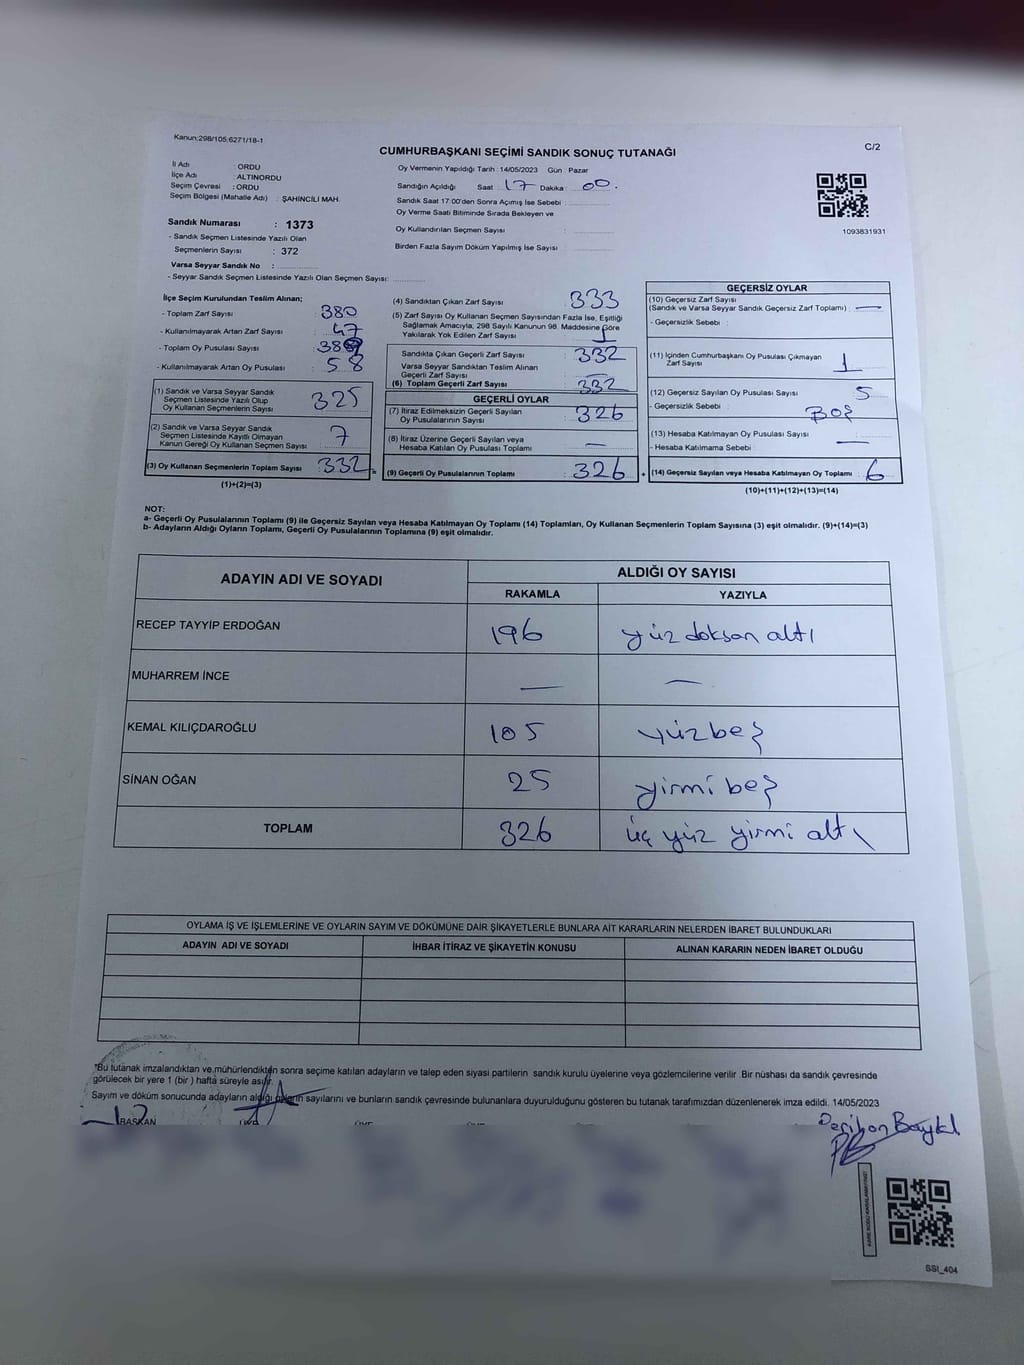 Kanun:298/105;6271/18-1
C/2
CUMHURBAŞKANI SEÇİMİ SANDIK SONUÇ TUTANAĞI
İl Adı : ORDU
İlçe Adı : ALTINORDU
Seçim Çevresi : ORDU
Seçim Bölgesi (Mahalle Adı) : ŞAHİNCİLİ MAH.
Sandık Numarası : 1373
- Sandık Seçmen Listesinde Yazılı Olan
Seçmenlerin Sayısı : 372
Varsa Seyyar Sandık No :
- Seyyar Sandık Seçmen Listesinde Yazılı Olan Seçmen Sayısı:
Oy Vermenin Yapıldığı Tarih : 14/05/2023 Gün : Pazar
Sandığın Açıldığı Saat 17 Dakika : 00.
Sandık Saat 17:00'den Sonra Açımış İse Sebebi :
Oy Verme Saati Bitiminde Sırada Bekleyen ve
Oy Kullandırılan Seçmen Sayısı :
Birden Fazla Sayım Döküm Yapılmış İse Sayısı :
1093831931
İlçe Seçim Kurulundan Teslim Alınan;
- Toplam Zarf Sayısı : 380
- Kullanılmayarak Artan Zarf Sayısı : 47
- Toplam Oy Pusulası Sayısı :
- Kullanılmayarak Artan Oy Pusulası : 58
(1) Sandık ve Varsa Seyyar Sandık
Seçmen Listesinde Yazılı Olup
Oy Kullanan Seçmenlerin Sayısı : 325
(2) Sandık ve Varsa Seyyar Sandık
Seçmen Listesinde Kayıtlı Olmayan
Kanun Gereği Oy Kullanan Seçmen Sayısı : 7
(3) Oy Kullanan Seçmenlerin Toplam Sayısı : 332
(1)+(2)=(3)
(4) Sandıktan Çıkan Zarf Sayısı : 333
(5) Zarf Sayısı Oy Kullanan Seçmen Sayısından Fazla İse, Eşitliği
Sağlamak Amacıyla; 298 Sayılı Kanunun 98. Maddesine Göre
Yakılarak Yok Edilen Zarf Sayısı : 1
Sandıkta Çıkan Geçerli Zarf Sayısı : 332
Varsa Seyyar Sandıktan Teslim Alınan
Geçerli Zarf Sayısı
(6) Toplam Geçerli Zarf Sayısı : 332
GEÇERLİ OYLAR
(7) İtiraz Edilmeksizin Geçerli Sayılan
Oy Pusulalarının Sayısı : 326
(8) İtiraz Üzerine Geçerli Sayılan veya
Hesaba Katılan Oy Pusulası Toplamı : —
(9) Geçerli Oy Pusulalarının Toplamı : 326
GEÇERSİZ OYLAR
(10) Geçersiz Zarf Sayısı
(Sandık ve Varsa Seyyar Sandık Geçersiz Zarf Toplamı) : —
- Geçersizlik Sebebi :
(11) İçinden Cumhurbaşkanı Oy Pusulası Çıkmayan
Zarf Sayısı : 1
(12) Geçersiz Sayılan Oy Pusulası Sayısı : 5
- Geçersizlik Sebebi : BOŞ
(13) Hesaba Katılmayan Oy Pusulası Sayısı : —
- Hesaba Katılmama Sebebi :
(14) Geçersiz Sayılan veya Hesaba Katılmayan Oy Toplamı : 6
(10)+(11)+(12)+(13)=(14)
NOT:
a- Geçerli Oy Pusulalarının Toplamı (9) ile Geçersiz Sayılan veya Hesaba Katılmayan Oy Toplamı (14) Toplamları, Oy Kullanan Seçmenlerin Toplam Sayısına (3) eşit olmalıdır. (9)+(14)=(3)
b- Adayların Aldığı Oyların Toplamı, Geçerli Oy Pusulalarının Toplamına (9) eşit olmalıdır.
ADAYIN ADI VE SOYADI ALDIĞI OY SAYISI
RAKAMLA YAZIYLA
RECEP TAYYİP ERDOĞAN 196 yüz doksan altı
MUHARREM İNCE — —
KEMAL KILIÇDAROĞLU 105 yüzbeş
SİNAN OĞAN 25 yirmi beş
TOPLAM 326 üç yüz yirmi altı
OYLAMA İŞ VE İŞLEMLERİNE VE OYLARIN SAYIM VE DÖKÜMÜNE DAİR ŞİKAYETLERLE BUNLARA AİT KARARLARIN NELERDEN İBARET BULUNDUKLARI
ADAYIN ADI VE SOYADI İHBAR İTİRAZ VE ŞİKAYETİN KONUSU ALINAN KARARIN NEDEN İBARET OLDUĞU
*Bu tutanak imzalandıktan ve mühürlendikten sonra seçime katılan adayların ve talep eden siyasi partilerin sandık kurulu üyelerine veya gözlemcilerine verilir. Bir nüshası da sandık çevresinde
görülecek bir yere 1 (bir) hafta süreyle asılır.
Sayım ve döküm sonucunda adayların aldığı oyların sayılarını ve bunların sandık çevresinde bulunanlara duyurulduğunu gösteren bu tutanak tarafımızdan düzenlenerek imza edildi. 14/05/2023
BAŞKAN ÜYE ÜYE ÜYE
SSI_404